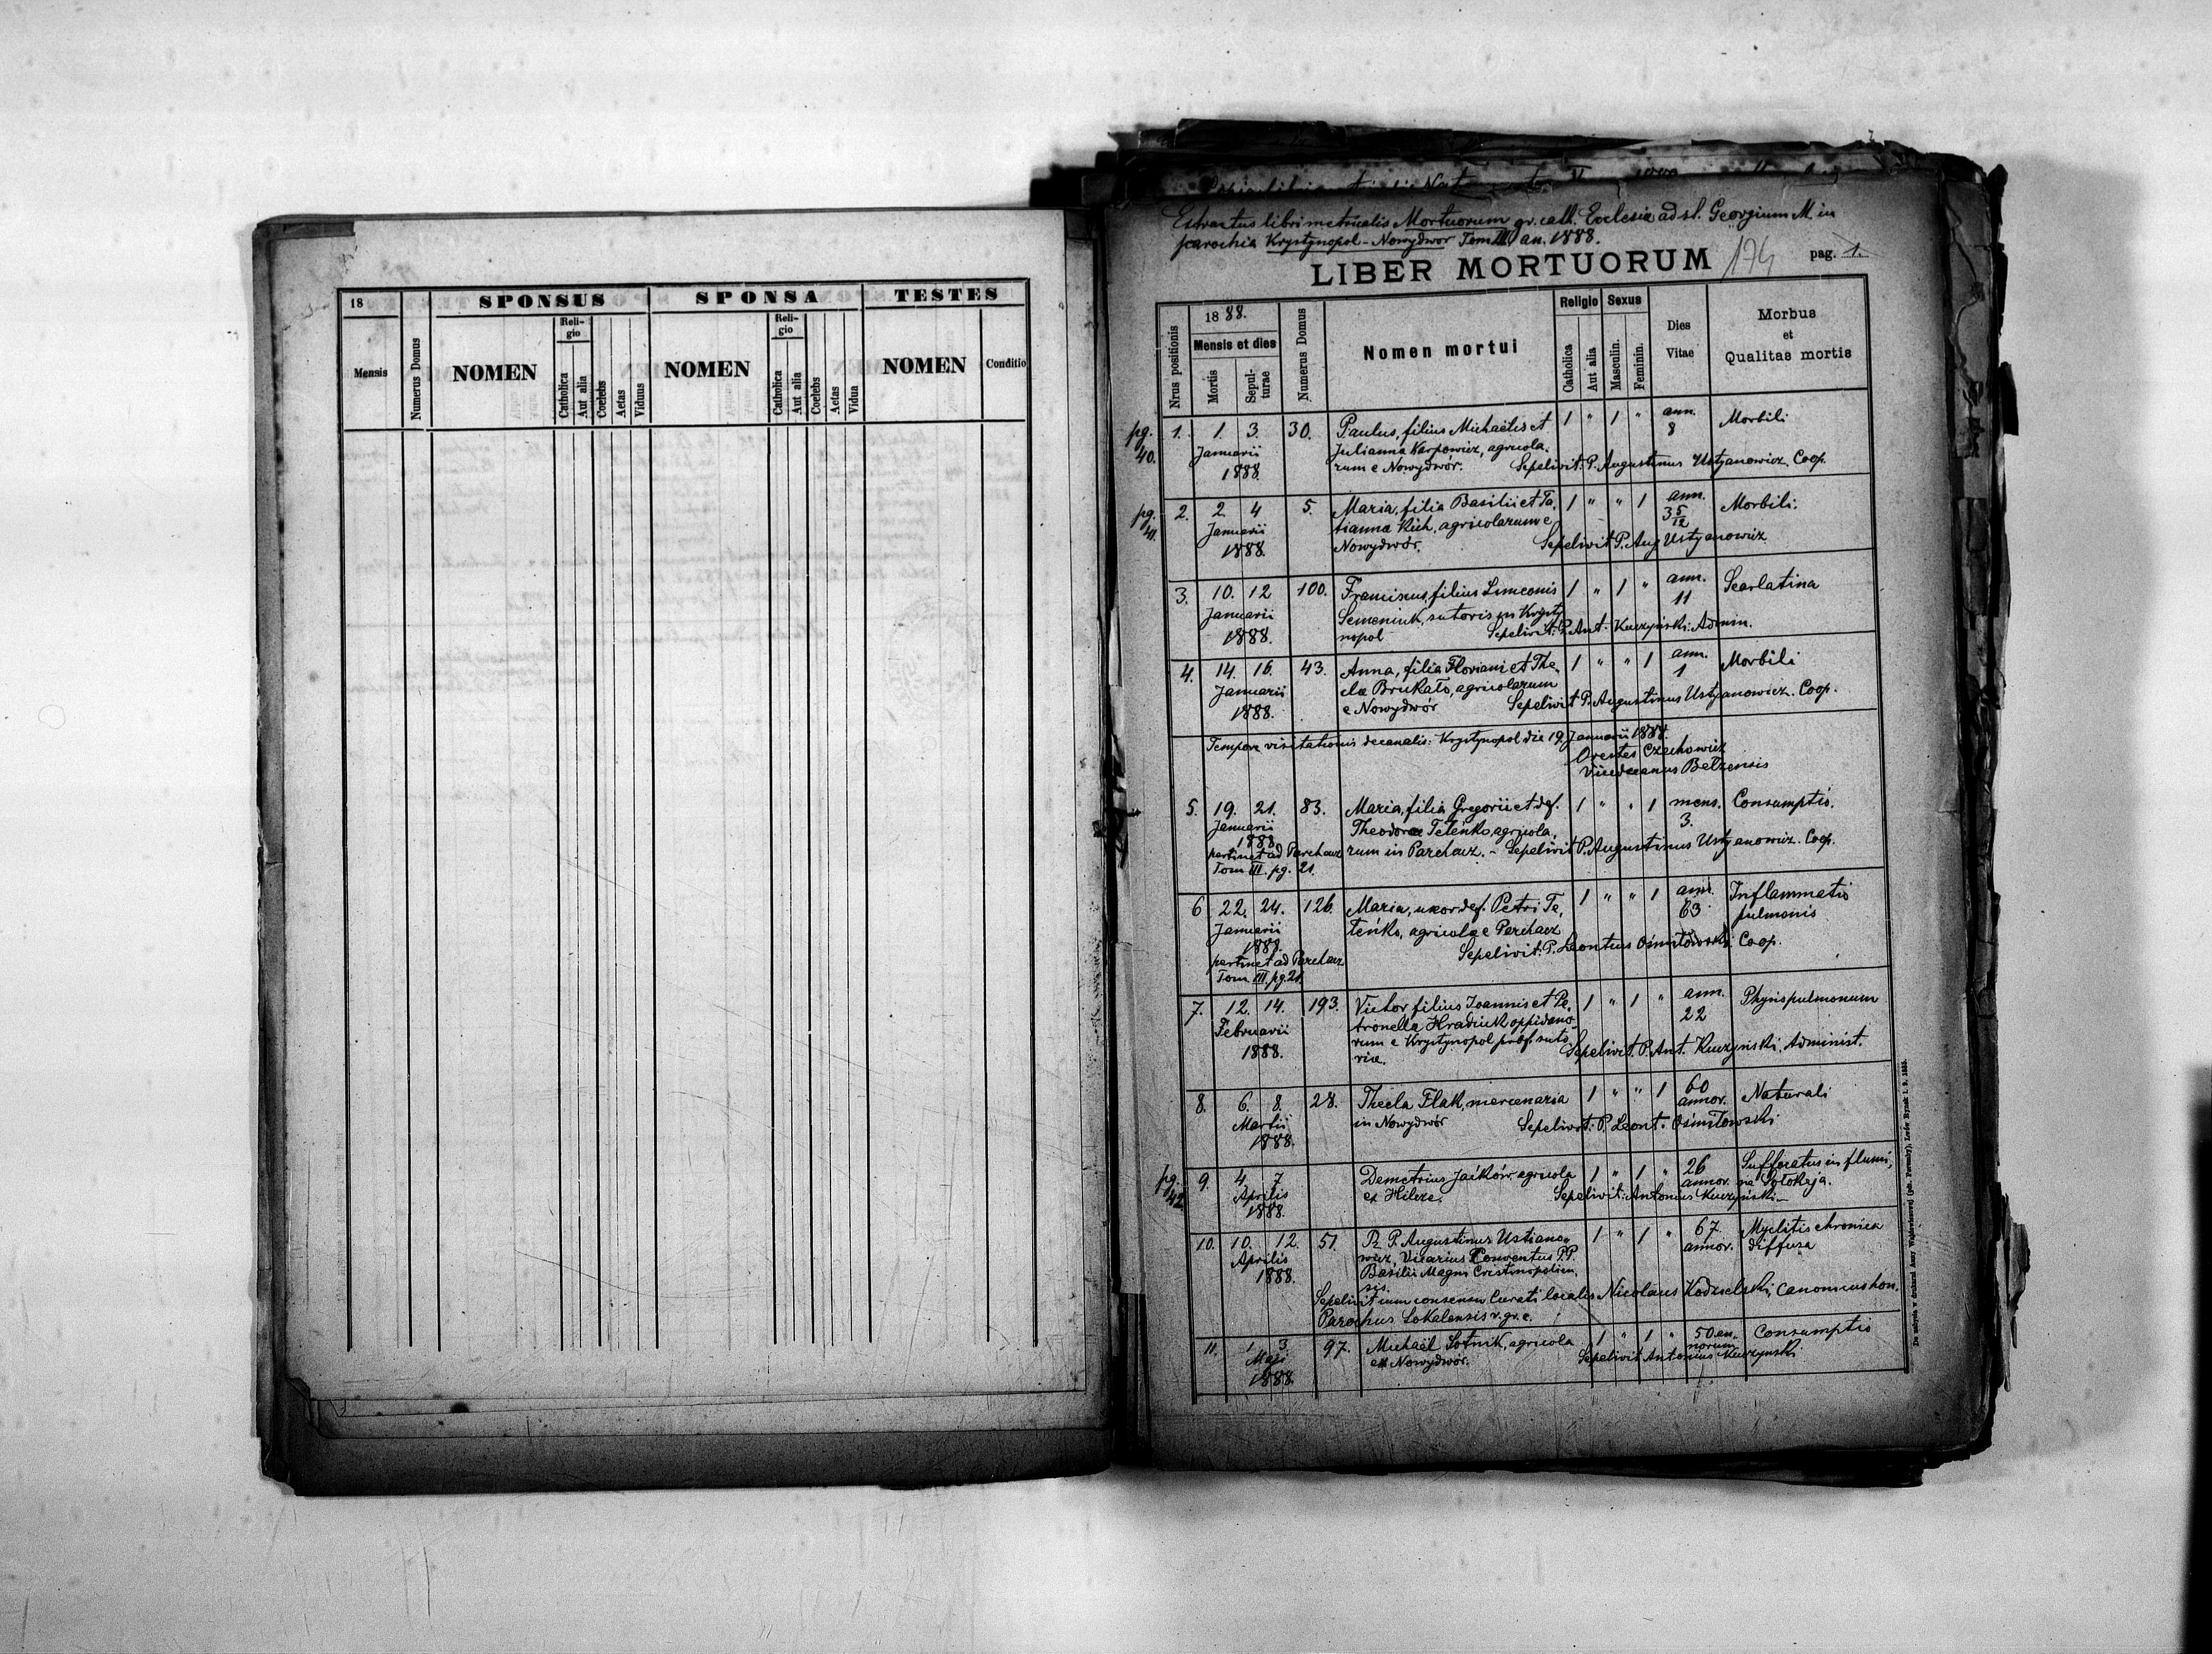 18
SPONSUS
SPONSA
TESTES
Mensis
Numerus Domus
NOMEN
Reli-
gio
Catholica
Aut alia
Coelebs
Aetas
Viduus
NOMEN
Reli-
gio
Catholica
Aut alia
Coelebs
Aetas
Vidua
NOMEN
Conditio
Extractus libri metricalis Mortuorum gr. cath. Ecclesiæ ad st. Georgium M. in
parochia Krystynopol - Nowydwor Tom III an. 1888.
LIBER MORTUORUM 174 pag. 1.
Nrus positionis
1888.
Mensis et dies
Mortis
Sepul-
turae
Numerus Domus
Nomen mortui
Religio
Catholica
Aut alia
Sexus
Masculin.
Feminin.
Dies
Vitae
Morbus
et
Qualitas mortis
pg. 40. 1. 1. 3. 30. Paulus, filius Michaëlis et 1 " 1 " ann. 8 Morbili
Januarii Julianna Karpowicz, agricola-
1888. rum e Nowydwór. Sepelivit: P. Augustinus Ustyanowicz. Coop.
pg. 41. 2. 2. 4 5. Maria, filia Basilii et Ta- 1 " " 1 ann. 3 5/12 Morbili.
Januarii tianna Kich, agricolarum e
1888. Nowydwór. Sepelivit P. Aug Ustyanowicz
3. 10. 12 100. Franciscus, filius Simeonis 1 " 1 " ann. 11 Scarlatina
Januarii Semeniuk, sutoris in Krysty
1888. nopol Sepelivit: P. Ant. Kuczyński: Admin.
4. 14. 16. 43. Anna, filia Floriani et The- 1 " " 1 ann. 1 Morbili
Januarii clæ Brukało, agricolarum
1888. e Nowydwór Sepelivit P. Augustinus Ustyanowicz. Coop.
Tempore visitationis decanalis: Krystynopol die 19 Januarii 1888.
Orestes Czechowicz
Vicedecanus Bełzensis
5. 19. 21. 83. Maria, filia Gregorii et def. 1 " " 1 mens. 3. Consumptio.
Januarii Theodoræ Teleńko, agricola-
1888
pertinet ad Parchacz rum in Parchacz. - Sepelivit P. Augustinus Ustyanowicz. Coop.
Tom III. pg. 21.
6 22. 24. 126. Maria, uxor def. Petri Te- 1 " " 1 ann. 63 Inflammatio
Januarii leńko, agricolæ e Parchacz pulmonis
1888. Sepelivit: P. Leontius Ośmiłowski. Coop.
pertinet ad Parchacz
Tom III. pg. 21
7. 12. 14. 193. Victor filius Joannis et Pe- 1 " 1 " ann. 22 Phyris pulmonum
Februarii tronella Hradiuk oppidano-
1888. rum e Krystynopol prof. suto
riæ. Sepelivit. P. Ant. Kuczyński. Administ.
8. 6. 8. 28. Thecla Flak, mercenaria 1 " " 1 60 annor. Naturali
Martii in Nowydwór Sepelivit: P. Leont. Ośmiłowski
1888.
pg. 42 9. 4. 7 Demetrius Jaćków agricola 1 " 1 " 26 annor. Suffocatus in flumi-
Aprilis ex Hilcze. Sepelivit: Antonius Kuczyński - ne Sołokaja.
1888.
10. 10. 12. 51. P. Augustinus Ustiano- 1 " 1 " 67. annor. Myelitis chronica
Aprilis wicz, Vicarius Conventus P.P. diffusa
1888. Basilii Magni Cristinopolien-
sis.
Sepelivit cum consensu Curati localis Nicolaus Kodzielski, Canonicus hon.
Parochus Sokalensis r. gr. c.
11. 1. 3. 97. Michaël Sotnik, agricola 1 " 1 " 50 an- Consumptio
Maji ex Nowydwór. norum
1888. Sepelivit Antonius Kuczynski